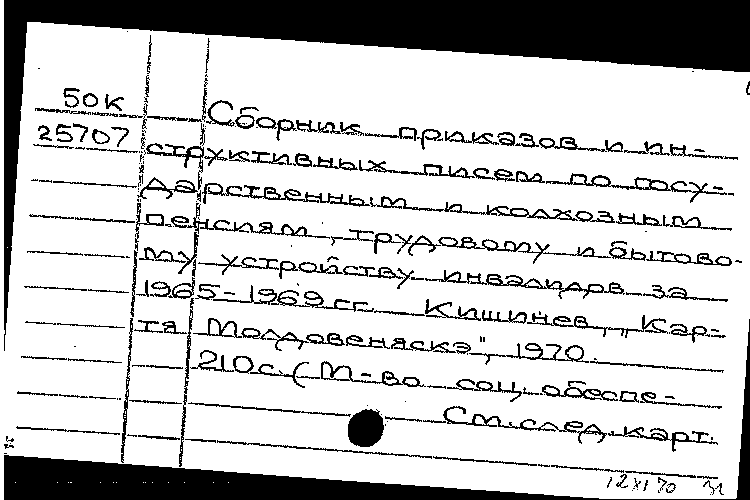 50к
25707
Сборник приказов и ин-
структивных писем по госу-
дарственным и колхозным
пенсиям, трудовому и бытово-
му устройству инвалидов за
1965-1969 гг. Кишинев, „Кар-
тя Молдовеняскэ", 1970.
210с. (М-во соц. обеспе-
См. след. карт.
12 XI 70